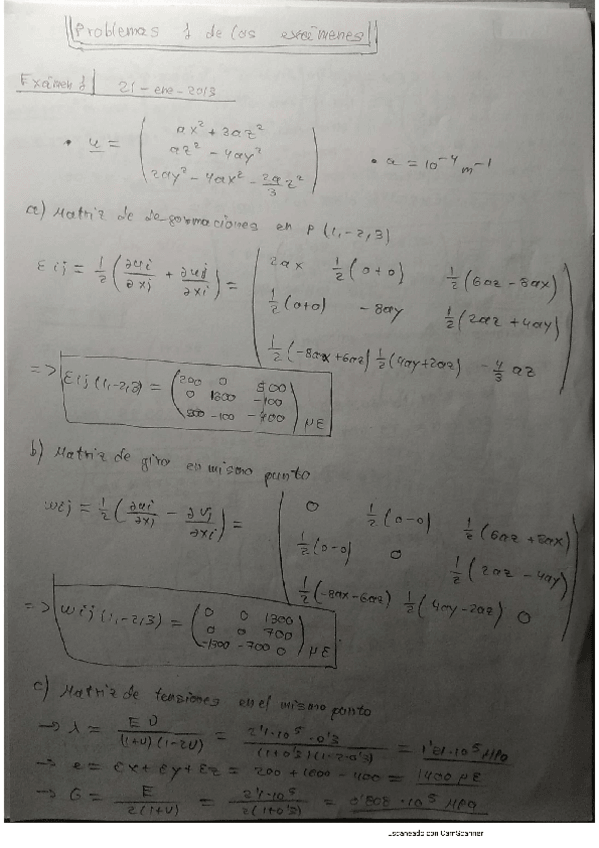 Problemas 1 de los exámenes
Exámen 1 | 21-ene-2013
• u = ( ax² + 3az²
az² - 4ay²
2ay² - 4ax² - 2a/3 z² ) • a = 10⁻⁴ m⁻¹
a) Matriz de deformaciones en P (1,-2,3)
εij = 1/2 (∂ui/∂xj + ∂uj/∂xi) = ( 2ax 1/2(0+0) 1/2(6az - 8ax)
1/2(0+0) - 8ay 1/2(2az + 4ay)
1/2(-8ax+6az) 1/2(4ay+2az) - 4/3 az )
=> εij (1,-2,3) = ( 200 0 500
0 1600 -100
500 -100 -400 ) με
b) Matriz de giro en mismo punto
wij = 1/2 (∂ui/∂xj - ∂uj/∂xi) = ( 0 1/2(0-0) 1/2(6az + 8ax)
1/2(0-0) 0 1/2(2az - 4ay)
1/2(-8ax-6az) 1/2(4ay-2az) 0 )
=> wij (1,-2,3) = ( 0 0 1300
0 0 700
-1300 -700 0 ) με
c) Matriz de tensiones en el mismo punto
→ λ = E ν / (1+ν)(1-2ν) = 2'1·10⁵·0'3 / (1+0'3)(1-2·0'3) = 1'21·10⁵ MPa
→ e = εx + εy + εz = 200 + 1600 - 400 = 1400 με
→ G = E / 2(1+ν) = 2'1·10⁵ / 2(1+0'3) = 0'808·10⁵ MPa
Escaneado con CamScanner